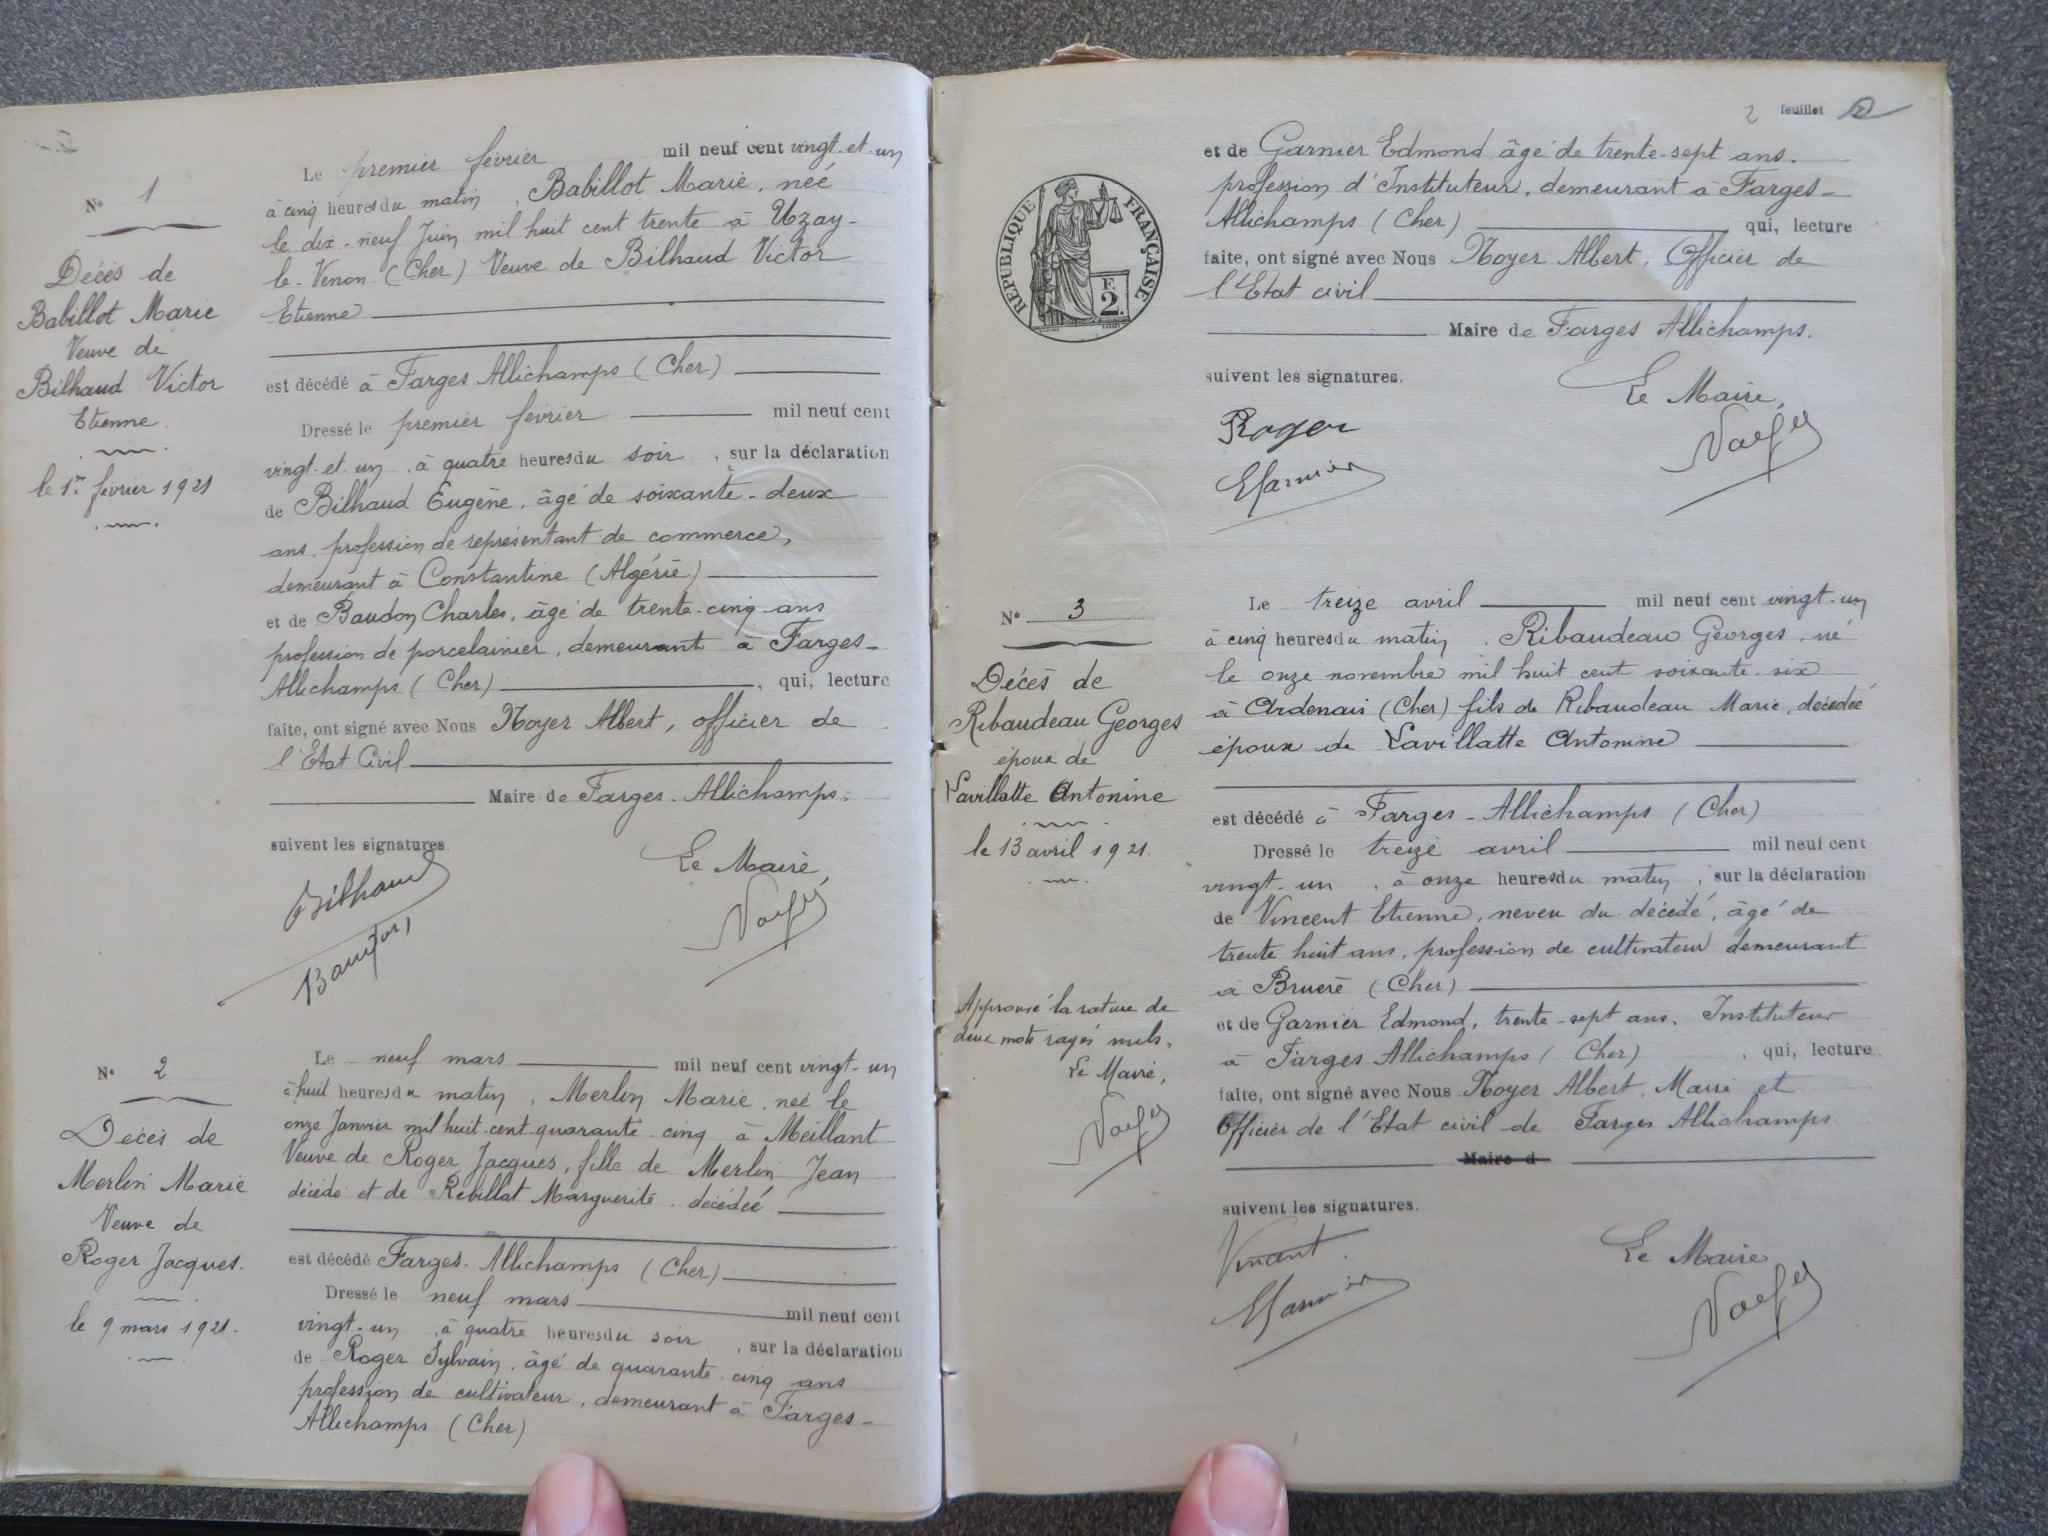 N° 1
Décès de
Babillot Marie
Veuve de
Bilhaud Victor
Etienne.
le 1er février 1921
Le premier février mil neuf cent vingt-et-un
à cinq heures du matin, Babillot Marie, née
le dix-neuf Juin mil huit cent trente à Uzay-
le-Venon (Cher) Veuve de Bilhaud Victor
Etienne
est décédé à Farges Allichamps (Cher)
Dressé le premier février mil neuf cent
vingt-et un, à quatre heures du soir, sur la déclaration
de Bilhaud Eugène, âgé de soixante-deux
ans, profession de représentant de commerce,
demeurant à Constantine (Algérie)
et de Baudon Charles, âgé de trente-cinq ans
profession de porcelainier, demeurant à Farges-
Allichamps (Cher), qui, lecture
faite, ont signé avec Nous Noyer Albert, officier de
l'Etat Civil
Maire de Farges-Allichamps.
suivent les signatures.
Le Maire,
Bilhaud
Baudon
Noyer
N° 2
Décès de
Merlin Marie
Veuve de
Roger Jacques.
le 9 mars 1921.
Le neuf mars mil neuf cent vingt-un
à huit heures du matin, Merlin Marie, née le
onze Janvier mil huit-cent-quarante-cinq à Meillant
Veuve de Roger Jacques, fille de Merlin Jean
décédé et de Rebillat Marguerite, décédée
est décédé Farges-Allichamps (Cher)
Dressé le neuf mars mil neuf cent
vingt-un, à quatre heures du soir, sur la déclaration
de Roger Sylvain, âgé de quarante-cinq ans
profession de cultivateur, demeurant à Farges-
Allichamps (Cher)
2 feuillet 2
RÉPUBLIQUE FRANÇAISE
F.
2.
et de Garnier Edmond âgé de trente-sept ans.
profession d'Instituteur, demeurant à Farges-
Allichamps (Cher) qui, lecture
faite, ont signé avec Nous Noyer Albert, Officier de
l'Etat civil
Maire de Farges Allichamps.
suivent les signatures.
Le Maire,
Roger
EGarnier
Noyer
N° 3
Décès de
Ribaudeau Georges
époux de
Lavillatte Antonine
le 13 avril 1921.
Approuvé la rature de
deux mots rayés nuls.
Le Maire,
Noyer
Le treize avril mil neuf cent vingt-un
à cinq heures du matin, Ribaudeau Georges, né
le onze novembre mil huit cent soixante-six
à Ardenais (Cher) fils de Ribaudeau Marie, décédée
époux de Lavillatte Antonine
est décédé à Farges-Allichamps (Cher)
Dressé le treize avril mil neuf cent
vingt-un, à onze heures du matin, sur la déclaration
de Vincent Etienne, neveu du décédé, âgé de
trente huit ans, profession de cultivateur demeurant
à Bruère (Cher)
et de Garnier Edmond, trente-sept ans, Instituteur
à Farges Allichamps (Cher), qui, lecture
faite, ont signé avec Nous Noyer Albert, Maire et
Officier de l'Etat civil de Farges Allichamps
Maire d
suivent les signatures.
Le Maire
Vincent
EGarnier
Noyer